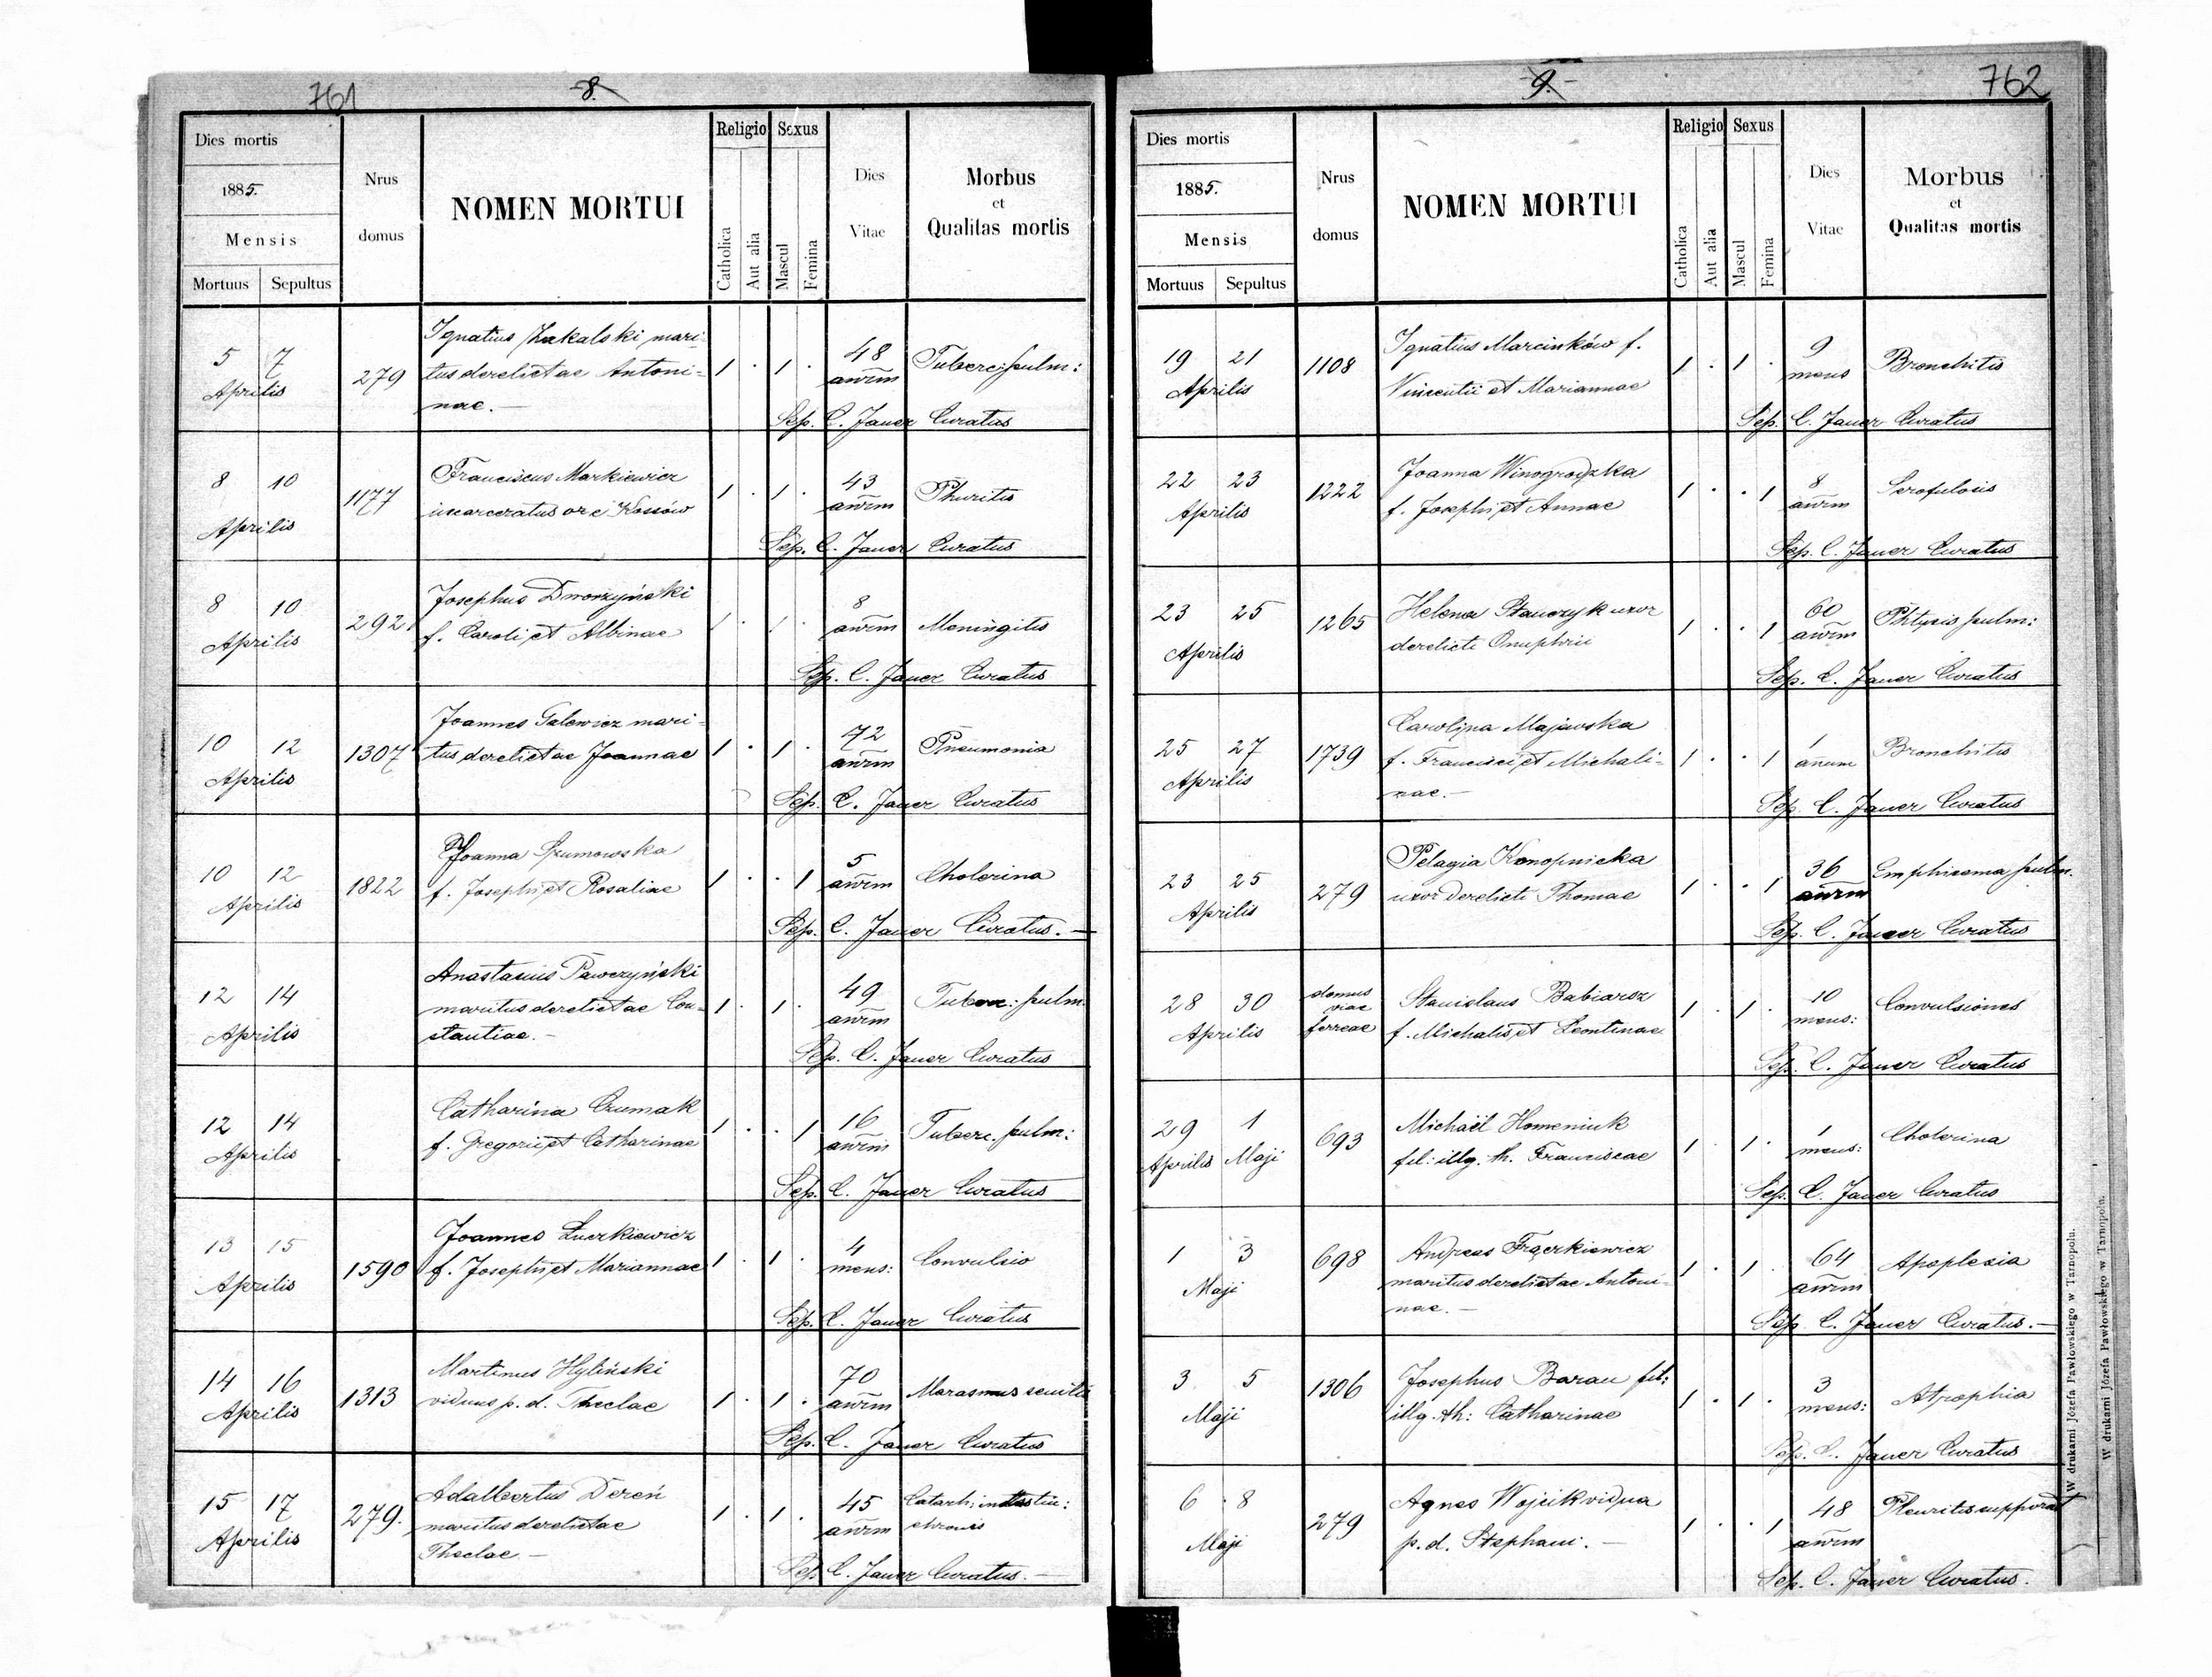 761
8.
Dies mortis
1885.
Mensis
Mortuus Sepultus
Nrus domus
NOMEN MORTUI
Religio
Catholica
Aut alia
Sexus
Mascul
Femina
Dies Vitae
Morbus
et
Qualitas mortis
5 7 Aprilis
279
Ignatius Zakalski mari-
tus derelictae Antoni-
nae. —
1 . 1 .
48 annrm
Tuberc: pulm:
Sep. C. Jauer Curatus
8 10 Aprilis
1177
Franciscus Markiewicz
incarceratus ore Kossów
1 . 1 .
43 annrm
Sep. C. Jauer Curatus
8 10 Aprilis
292
Josephus Dworzyński
f. Caroli et Albinae
1 . 1 .
8 annrm
Meningitis
Sep. C. Jauer Curatus
10 12 Aprilis
1307
Joannes Galewicz mari-
tus derelictae Joannae
1 . 1 .
72 annrm
Pneumonia
Sep. C. Jauer Curatus
10 12 Aprilis
1822
Joanna Szumowska
f. Josephi et Rosaliae
1 . . 1
5 annrm
Cholerina
Sep. C. Jauer Curatus. —
12 14 Aprilis
Anastasius Pawczyński
maritus derelictae Con-
stantiae. —
1 . 1 .
49 annrm
Tuberc: pulm.
Sep. C. Jauer Curatus
12 14 Aprilis
Catharina Czumak
f. Gregorii et Catharinae
1 . . 1
16 annrm
Tuberc. pulm:
Sep. C. Jauer Curatus
13 15 Aprilis
1590
Joannes Łuczkiewicz
f. Josephi et Mariannae
1 . 1 .
4 mens:
Convulsio
Sep. C. Jauer Curatus
14 16 Aprilis
1313
Martinus Hyliński
viduus p. d. Theclae
1 . 1 .
70 annrm
Marasmus senilis
Sep. C. Jauer Curatus
15 17 Aprilis
279.
Adalbertus Dereń
maritus derelictae
Theclae —
1 . 1 .
45 annrm
Catarh: intestin:
chronis
Sep. C. Jauer Curatus. —
9.
762
Dies mortis
1885.
Mensis
Mortuus Sepultus
Nrus domus
NOMEN MORTUI
Religio
Catholica
Aut alia
Sexus
Mascul
Femina
Dies Vitae
Morbus
et
Qualitas mortis
19 21 Aprilis
1108
Ignatius Marcinków f.
Vincentii et Mariannae
1 . 1 .
9 mens
Bronchitis
Sep. C. Jauer Curatus
22 23 Aprilis
1222
Joanna Winogrodzka
f. Josephi et Annae
1 . . 1
8 annrm
Scrofulosis
Sep. C. Jauer Curatus
23 25 Aprilis
1265
Helena Stanczyk uxor
derelicti Onuphrii
1 . . 1
60 annrm
Phtysis pulm:
Sep. C. Jauer Curatus
25 27 Aprilis
1739
Carolina Majewska
f. Francisci et Michali-
nae. —
1 . . 1
1 annum
Bronchitis
Sep. C. Jauer Curatus
23 25 Aprilis
279
Pelagia Konopnicka
uxor derelicti Thomae
1 . . 1
36 annrm
Emphisema pulm.
Sep. C. Jauer Curatus
28 30 Aprilis
domus
viae
ferreae
Stanislaus Babiarsz
f. Michalis et Leontinae
1 . 1 .
10 mens:
Convulsiones
Sep. C. Jauer Curatus
29 1
Aprilis Maji
693
Michaël Homeniuk
fil: illg. th. Franciscae
1 . 1 .
1 mens:
Cholerina
Sep. C. Jauer Curatus
1 3 Maji
698
Andreas Frączkiewicz
maritus derelictae Antoni-
nae. —
1 . 1 .
64 annrm
Apoplexia
Sep. C. Jauer Curatus. —
3 5 Maji
1306
Josephus Baran fil:
illg. th: Catharinae
1 . 1 .
3 mens:
Atrophia
Sep. C. Jauer Curatus
6 8 Maji
279
Agnes Wojcik vidua
p. d. Stephani. —
1 . . 1
48 annrm
Pleuritis suppurat
Sep. C. Jauer Curatus.
W drukarni Józefa Pawłowskiego w Tarnopolu.
W drukarni Józefa Pawłowskiego w Tarnopolu.